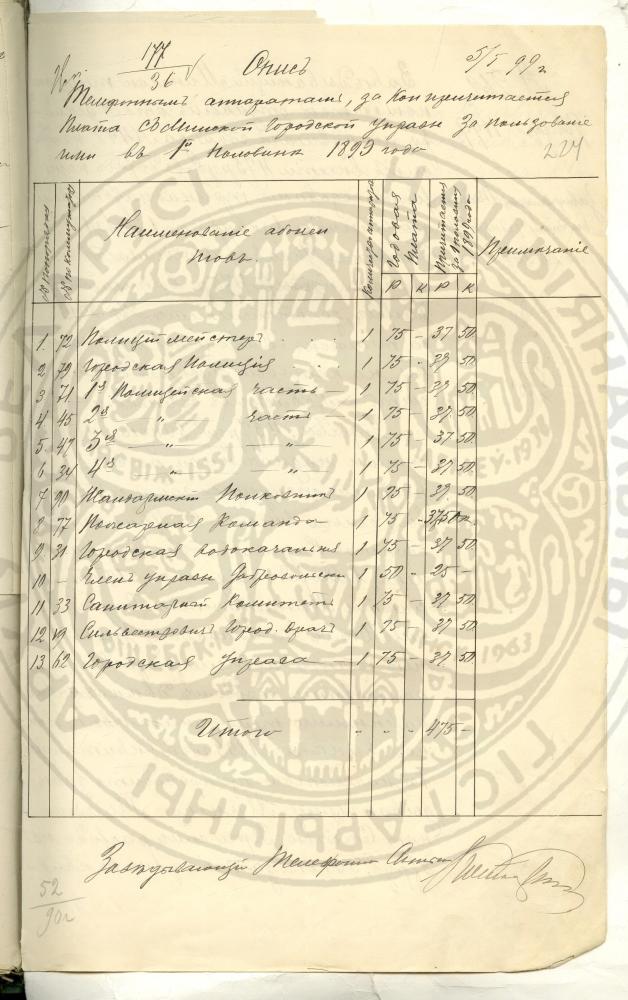 177
36
Опись
5/I 99 г.
Телефоннымъ аппаратамъ, за кои причитается
плата съ Минской Городской Управы за пользованіе
ими въ 1й половинѣ 1899 года
№ по порядку
№ по коммутатору
Наименованіе абонен
товъ.
Количество аппаратовъ
Годовая плата
Причитается за 1 половину 1899 года
Примѣчаніе
Р К Р К
1 72 Полицiймейстеръ 1 75 - 37 50
2 79 Городская Полиція 1 75 - 37 50
3 71 1я Полицейская часть 1 75 - 37 50
4 45 2я " часть 1 75 - 37 50
5 47 3я " " 1 75 - 37 50
6 34 4я " " 1 75 - 37 50
7 90 Жандармскій Полковникъ 1 75 - 37 50
8 77 Пожарная Команда 1 75 - 37 50 к.
9 31 Городская водокачальня 1 75 - 37 50
10 - Членъ управы 1 50 - 25 -
11 33 Санитарный Комитетъ 1 75 - 37 50
12 19 Сильвестровичъ Город. врачъ 1 75 - 37 50
13 62 Городская управа 1 75 - 37 50
Итого " " " 475 -
Завѣдывающій Телефон. Сѣтью
52
90г